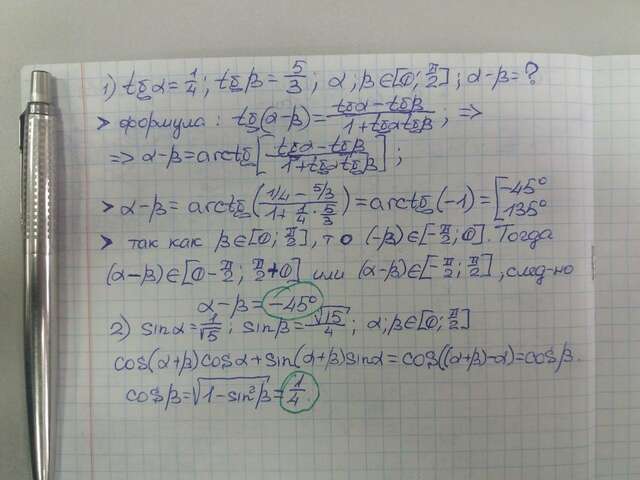 1) tgα=1/4; tgβ=5/3; α;β∈[0;π/2]; α-β=?
> формула: tg(α-β)=(tgα-tgβ)/(1+tgαtgβ); =>
=> α-β=arctg[(tgα-tgβ)/(1+tgαtgβ)];
> α-β= arctg((1/4-5/3)/(1+1/4·5/3))=arctg(-1)=[-45° 135°
> так как β∈[0;π/2], то (-β)∈[-π/2;0]. Тогда
(α-β)∈[0-π/2; π/2+0] или (α-β)∈[-π/2;π/2], след-но
α-β=-45°
2) sinα=1/√5; sinβ=√15/4; α;β∈[0;π/2]
cos(α+β)cosα+sin(α+β)sinα=cos((α+β)-α)=cosβ.
cosβ=√(1-sin²β)=1/4.